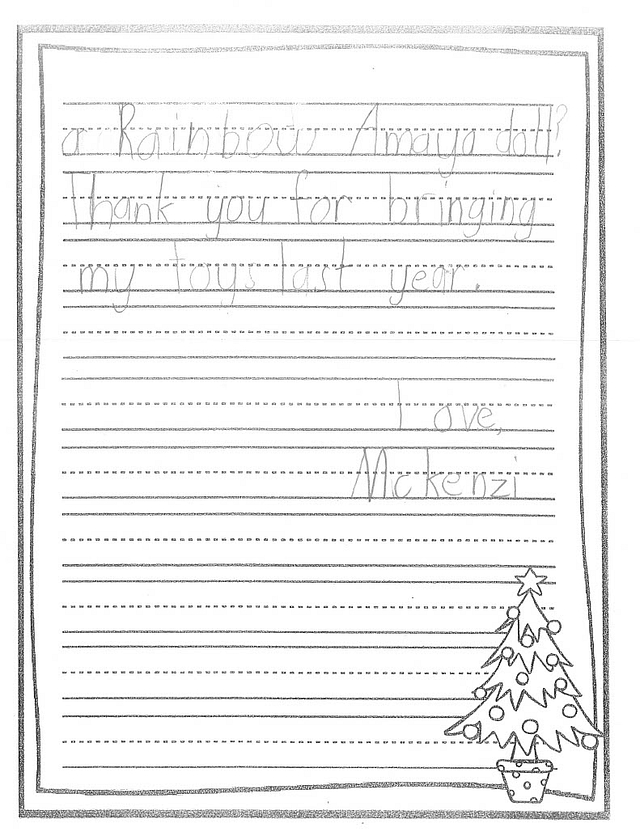 a Rainbow Amaya doll?
Thank you for bringing
my toys last year.
Love,
Mckenzi